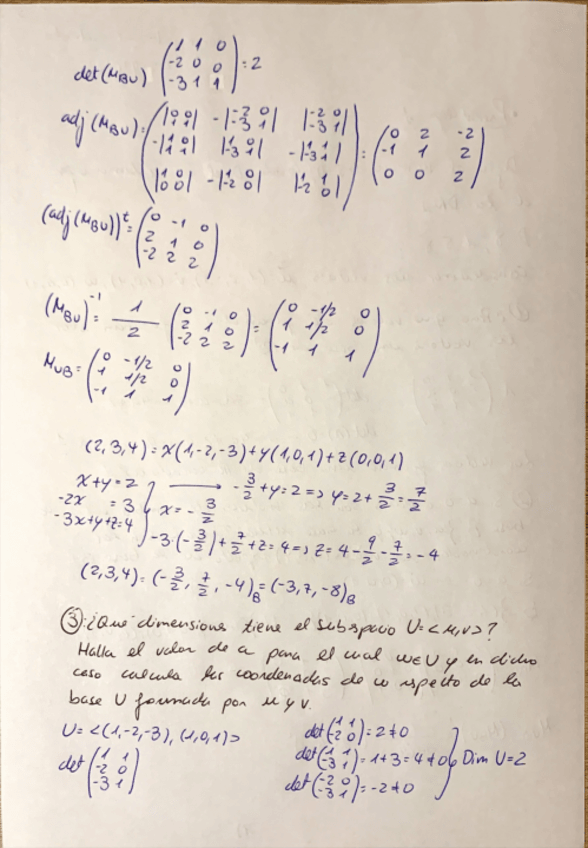 det(M_BU) (1 1 0; -2 0 0; -3 1 1) = 2
adj(M_BU) = (|0 0; 1 1| -|-2 0; -3 1| |-2 0; -3 1|; -|1 0; 1 1| |1 0; -3 1| -|1 1; -3 1|; |1 0; 0 0| -|1 0; -2 0| |1 1; -2 0|) = (0 2 -2; -1 1 2; 0 0 2)
(adj(M_BU))^t = (0 -1 0; 2 1 0; -2 2 2)
(M_BU)^-1 = 1/2 (0 -1 0; 2 1 0; -2 2 2) = (0 -1/2 0; 1 1/2 0; -1 1 1)
M_UB = (0 -1/2 0; 1 1/2 0; -1 1 1)
(2,3,4) = x(1,-2,-3) + y(1,0,1) + z(0,0,1)
x+y=2 → -3/2 + y = 2 => y = 2 + 3/2 = 7/2
-2x = 3 x = -3/2
-3x+y+z=4 -3·(-3/2) + 7/2 + z = 4 => z = 4 - 9/2 - 7/2 = -4
(2,3,4) = (-3/2, 7/2, -4)_B = (-3, 7, -8)_B
③ ¿Qué dimensions tiene el subspacio U=<u,v>?
Halla el valor de a para el cual w∈U y en dicho
caso calcula las coordenadas de w respecto de la
base U formada por u y v.
U = <(1,-2,-3), (1,0,1)>
det (1 1; -2 0; -3 1)
det (1 1; -2 0) = 2 ≠ 0
det (1 1; -3 1) = 1+3 = 4 ≠ 0 } Dim U=2
det (-2 0; -3 1) = -2 ≠ 0